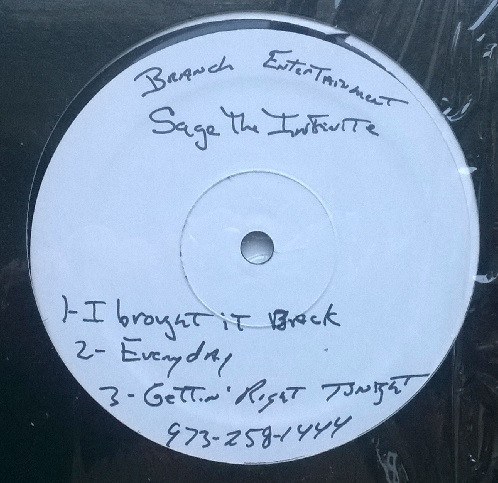 Branch Entertainment
Sage The Infinite
1-I brought it Back
2-Everyday
3-Gettin' Right Tonight
973-258-1444